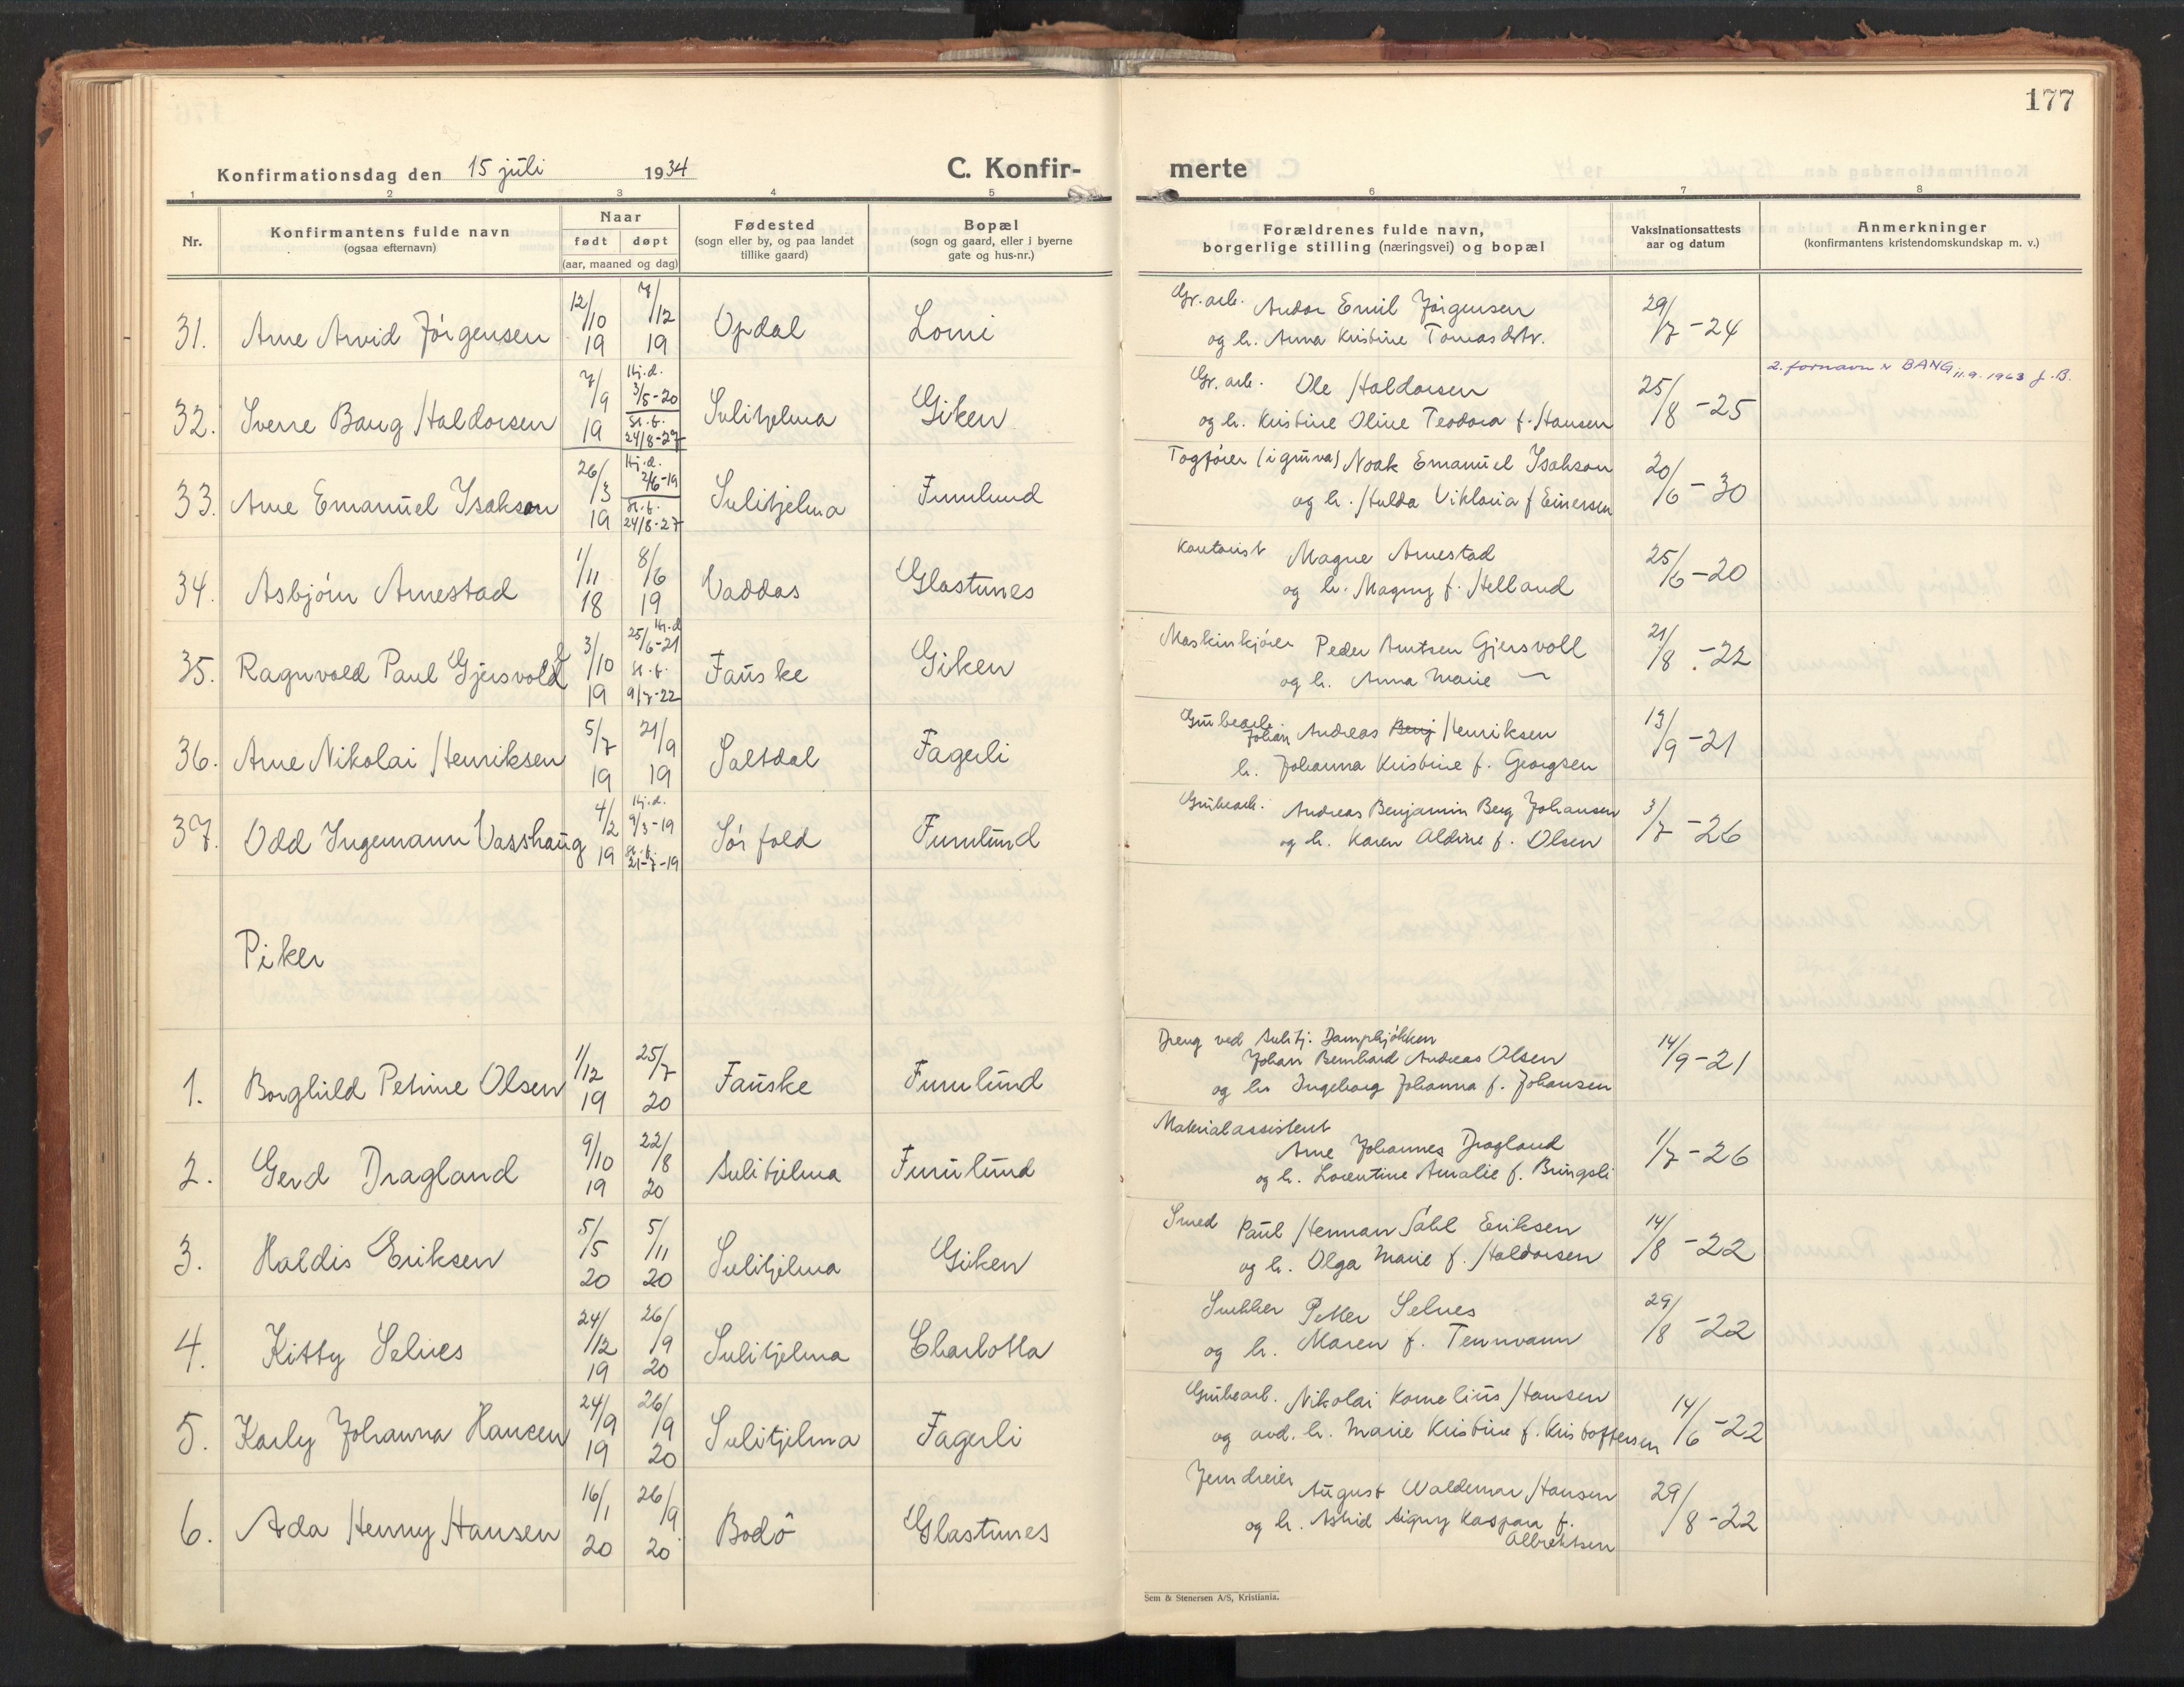 177
Konfirmationsdag den 15 juli 1934
C. Konfir-
merte
1 2 3 4 5 6 7 8
Nr.
Konfirmantens fulde navn
(ogsaa efternavn)
Naar
født døpt
(aar, maaned og dag)
Fødested
(sogn eller by, og paa landet
tillike gaard)
Bopæl
(sogn og gaard, eller i byerne
gate og hus-nr.)
Forældrenes fulde navn,
borgerlige stilling (næringsvei) og bopæl
Vaksinationsattests
aar og datum
Anmerkninger
(konfirmantens kristendomskundskap m. v.)
31. Arne Arvid Jörgensen 12/10 19 7/12 19 Opdal Lomi
Gr. arb. Andor Emil Jörgensen
og h. Anna Kristine Tomasdtr. 29/7-24
32. Sverre Bang Haldorsen 7/9 19 Hj.d. 3/5-20 st.f. 24/8-27 Sulitjelma Giken
Gr. arb. Ole Haldorsen
og h. Kristine Oline Teodora f. Hansen 25/8-25
2. fornavn BANG 11.9.1963 J.B.
33. Arne Emanuel Isakson 26/3 19 Hj.d. 2/6-19 st.f. 24/8-27 Sulitjelma Furulund
Togförer (i gruva) Noak Emanuel Isakson
og h. Hulda Viktoria f Einersen 20/6-30
34. Asbjörn Arnestad 1/11 18 8/6 19 Vaddas Glastunes
Kontorist Magne Arnestad
og h. Magny f. Helland 25/6-20
35. Ragnvald Paul Gjersvold 3/10 19 Hj.d 25/6-21 st.f. 9/7-22 Fauske Giken
Maskinkjörer Peder Arntsen Gjersvoll
og h. Anna Marie — 21/8-22
36. Arne Nikolai Henriksen 5/7 19 21/9 19 Saltdal Fagerli
Grubearb. Johan Andreas Benj Henriksen
h. Johanna Kristine f. Georgsen 13/9-21
37. Odd Ingemann Vasshaug 4/2 19 Hj.d. 9/3-19 st.f. 21-7-19 Sörfold Furulund
Grubearb. Andreas Benjamin Berg Johansen
og h. Karen Aldine f. Olsen 3/7-26
Piker
1. Borghild Petrine Olsen 1/12 19 25/7 20 Fauske Furulund
Dreng ved Sulitj. Dampkjökken
Johan Bernhard Andreas Olsen
og hu Ingeborg Johanna f. Johansen 14/9-21
2. Gerd Dragland 9/10 19 22/8 20 Sulitjelma Furulund
Materialassistent
Arne Johannes Dragland
og h. Lorentine Amalie f. Bringsli 1/7-26
3. Haldis Eriksen 5/5 20 5/11 20 Sulitjelma Giken
Smed Paul Herman Sahl Eriksen
og h. Olga Marie f. Haldorsen 14/8-22
4. Kitty Selnes 24/12 19 26/9 20 Sulitjelma Charlotta
Snekker Petter Selnes
og h. Maren f. Tennvann 29/8-22
5. Karly Johanna Hansen 24/9 19 26/9 20 Sulitjelma Fagerli
Grubearb. Nikolai Kornelius Hansen
og avd. h. Marie Kristine f. Kristoffersen 14/6-22
6. Ada Henny Hansen 16/1 20 26/9 20 Bodö Glastunes
Jerndreier August Waldemar Hansen
og h. Astrid Signy Kaspara f.
Albrektsen 29/8-22
Sem & Stenersen A/S, Kristiania.